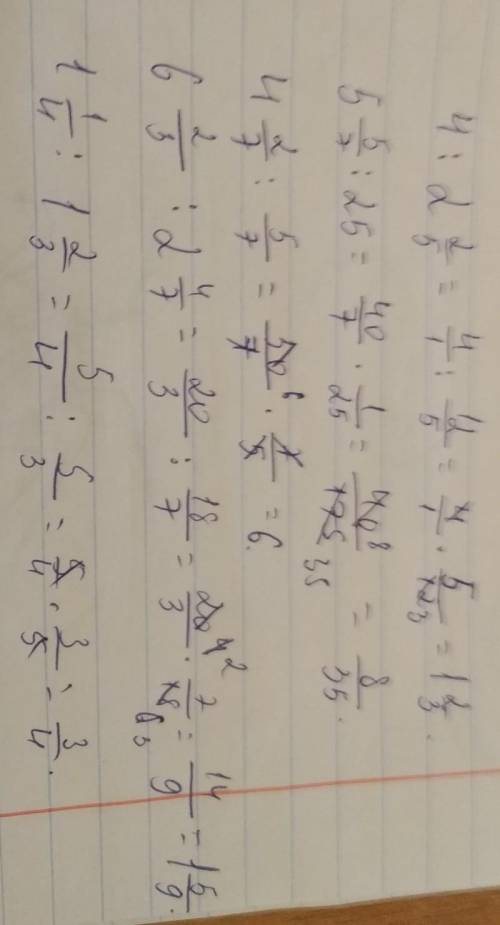 4 : 2 2/5 = 4/1 : 12/5 = 4/1 · 5/12 3 = 1 2/3.
5 5/7 : 25 = 40/7 · 1/25 = 40 8/175 35 = 8/35.
4 2/7 : 5/7 = 30 6/7 · 7/5 = 6.
6 2/3 : 2 4/7 = 20/3 : 18/7 = 20 4 2/3 · 7/18 6 3 = 14/9 = 1 5/9.
1 1/4 : 1 2/3 = 5/4 : 5/3 = 5/4 · 3/5 = 3/4.